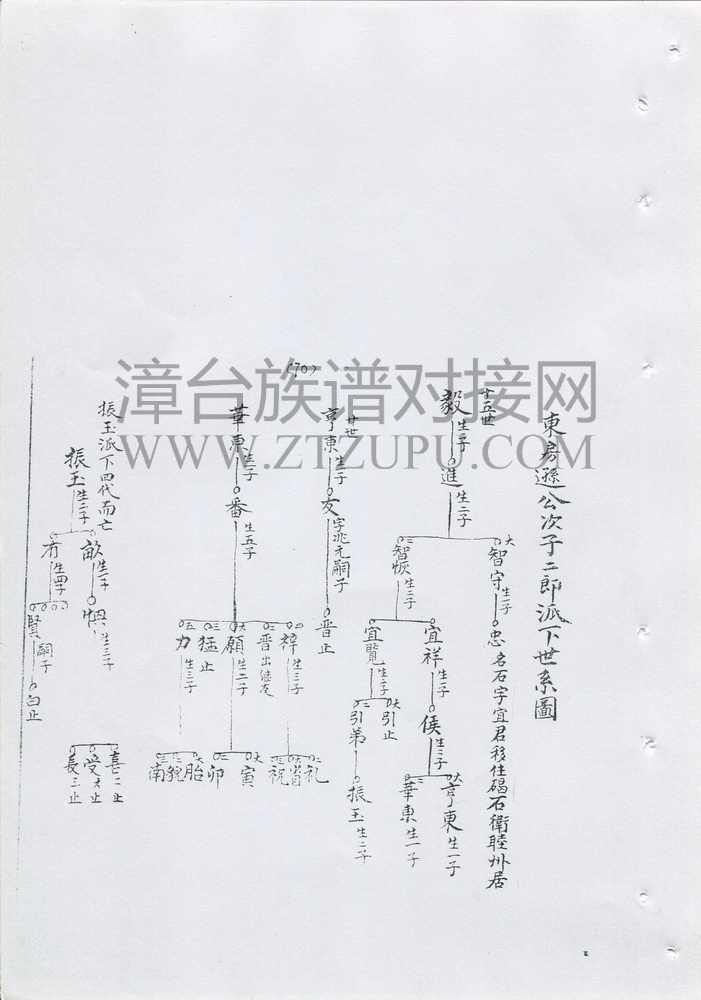 東房遜公次子二郎派下世系圖
十五世
毅生一子
進生二子
大 智守生一子
忠名石字宜君移住碣石衛睦州居
二 智恢生二子
宜祥生一子
侯生二子
大 亨東生一子
二 華東生一子
宜覽生二子
大 引止
二 引弟
振玉生二子
(70)
廿世
亨東生一子
友字兆元嗣子
晋止
華東生一子
番生五子
四 梓生三子
二 礼
大 省
三 祝
二 晋出继友
大 願生二子
大 寅
二 卯
三 猛止
五 力生三子
大 胎
二 貌
三 南
振玉派下四代而亡
振玉生二子
畝生一子
生三子
喜二止
受大止
長三止
有生四子
賢嗣子
白止
漳台族谱对接网
WWW.ZTZUPU.COM